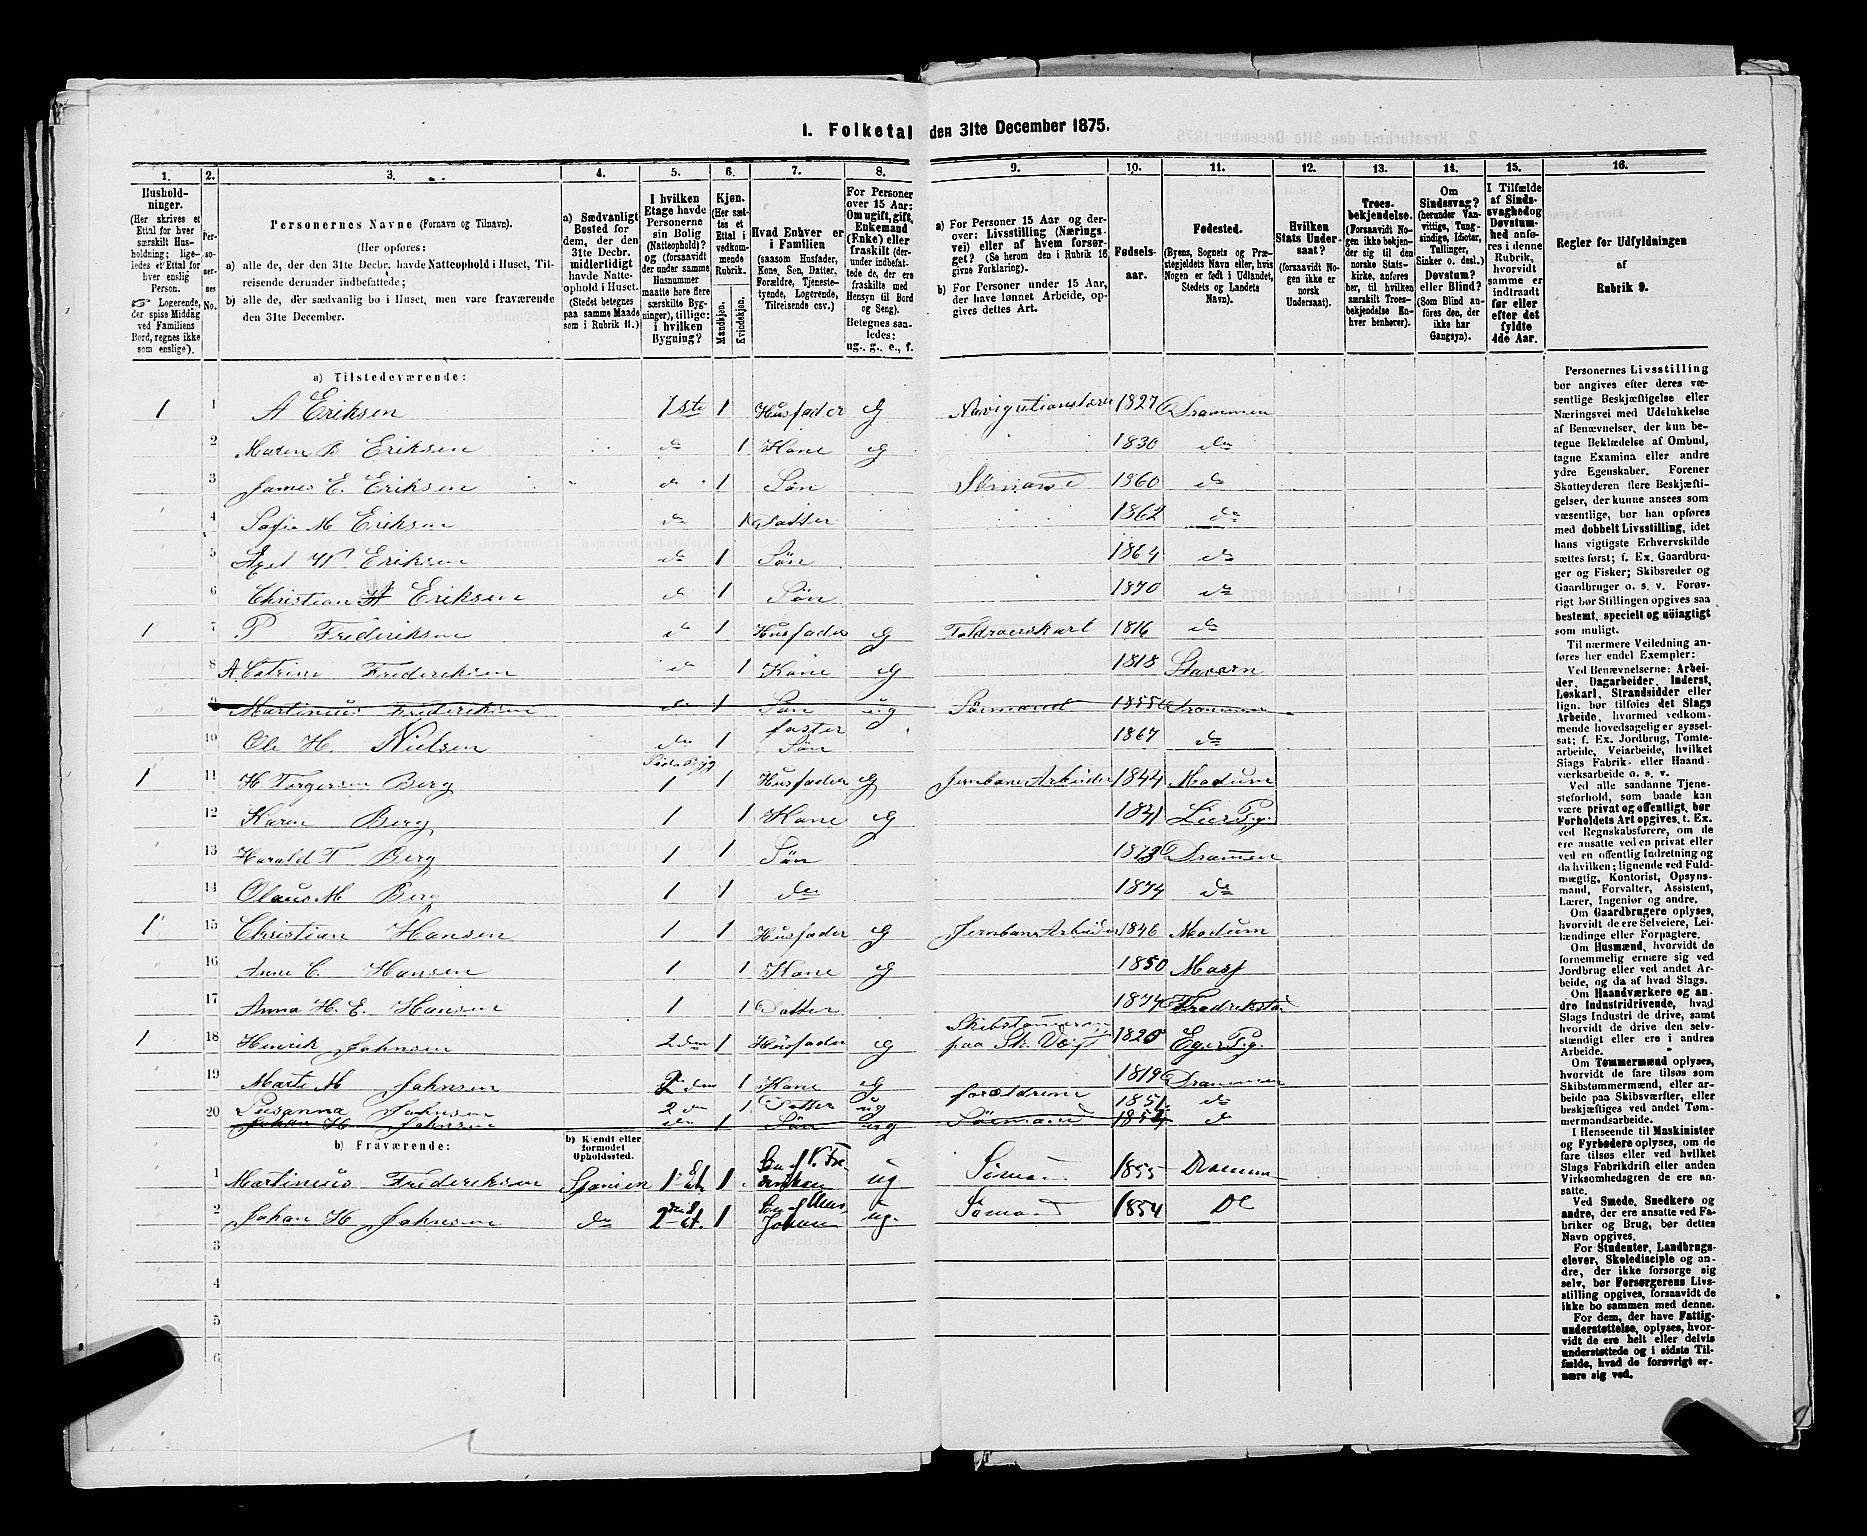 I. Folketal den 31te December 1875.
1. 2. 3. 4. 5. 6. 7. 8. 9. 10. 11. 12. 13. 14. 15. 16.
Hushold-
ninger.
(Her skrives et
Ettal for hver
særskilt Hus-
holdning; lige-
ledes et Ettal for
hver enslig
Person.
☞ Logerende,
der spise Middag
ved Familiens
Bord, regnes ikke
som enslige).
Per-
so-
ner-
nes
No.
Personernes Navne (Fornavn og Tilnavn).
(Her opføres:
a) alle de, der den 31te Decbr. havde Natteophold i Huset, Til-
reisende derunder indbefattede;
b) alle de, der sædvanlig bo i Huset, men vare fraværende
den 31te December.
a) Sædvanligt
Bosted for
dem, der den
31te Decbr.
midlertidigt
havde Natte-
ophold i Huset.
(Stedet betegnes
paa samme Maade
som i Rubrik 11.)
I hvilken
Etage havde
Personerne
sin Bolig
(Natteophold)?
og (forsaavidt
der under samme
Husnummer
maatte høre flere
særskilte Byg-
ninger), tillige:
i hvilken
Bygning?
Kjøn.
(Her sæt-
tes et
Ettal i
vedkom-
mende
Rubrik.
Mandkjøn.
Kvindekjøn.
Hvad Enhver er
i Familien
(saasom Husfader,
Kone, Søn, Datter,
Forældre, Tjeneste-
tyende, Logerende,
Tilreisende osv.)
For Personer
over 15 Aar:
Om ugift, gift,
Enkemand
(Enke) eller
fraskilt (der-
under indbefat-
tede de, der ere
fraskilte med
Hensyn til Bord
og Seng).
Betegnes saa-
ledes:
ug., g., e., f.
a) For Personer 15 Aar og der-
over: Livsstilling (Nærings-
vei) eller af hvem forsør-
get? (Se herom den i Rubrik 16
givne Forklaring).
b) For Personer under 15 Aar,
der have lønnet Arbeide, op-
gives dettes Art.
Fødsels-
aar.
Fødested.
(Byens, Sognets og Præ-
stegjeldets Navn eller, hvis
Nogen er født i Udlandet,
Stedets og Landets
Navn).
Hvilken
Stats Under-
saat?
(forsaavidt No-
gen ikke er
norsk
Undersaat).
Troes-
bekjendelse.
(Forsaavidt No-
gen ikke bekjen-
der sig til den
norske Stats-
kirke, anføres
her, til hvilken
særskilt Troes-
bekjendelse En-
hver henhører).
Om
Sindssvag?
(herunder Van-
vittige, Tung-
sindige, Idioter,
Tullinger,
Sinker o. desl.)
Døvstum?
eller Blind?
(Som Blind an-
føres den, der
ikke har
Gangsyn).
I Tilfælde
af Sinds-
svaghed og
Døvstum-
hed anfø-
res i denne
Rubrik,
hvorvidt
samme er
indtraadt
før eller
efter det
fyldte
4de Aar.
Regler for Udfyldningen
af
Rubrik 9.
a) Tilstedeværende:
1 1 A Eriksen 1ste 1 Husfader G 1827 Drammen
2 Maren B Eriksen do 1 Kone G 1830 do
3 James E. Eriksen do 1 Søn Sømand 1860 do
4 Sofie M Eriksen do 1 Datter 1862 do
5 Axel W Eriksen do 1 Søn 1864 do
6 Christian A Eriksen do 1 Søn 1870 do
1 7 P Frederiksen do 1 Husfader G Toldroerskarl 1816 do
8 A Catrine Frederiksen do 1 Kone G 1818 Stavern
9 Martinius Frederiksen do 1 Søn ug Sømand 1855 Drammen
10 Ole H. Nielsen do 1 foster Søn 1867 do
1 11 H Torgersen Berg 1 1 Husfader G Jernbane Arbeider 1844 Modum
12 Karen Berg 1 1 Kone G Lier Pg.
13 Harald T Berg 1 1 Søn 1873 Drammen
14 Olaus M Berg 1 1 do 1874 do
1 15 Christian Hansen 1 1 Husfader G Jernbane Arbeider 1846 Modum
16 Anne C. Hansen 1 1 Kone G 1850 Moss
17 Anna H. E. Hansen 1 1 Datter 1874 Fredrikstad
1 18 Henrik Johnsen 2den 1 Husfader G paa 1820 Eger Pg.
19 Marte M Johnsen 2den 1 Kone G 1819 Drammen
20 Susanna Johnsen 2 den 1 Datter ug forældrene 1851 do
Johan H Johnsen do 1 Søn ug Sømand 1854 do
b) Fraværende:
b) Kjendt eller
formodet
Opholdssted.
1 Martinius Frederiksen Spanien 1 Et. 1 Søn af P. Frederiksen ug Sømand 1855 Drammen
2 Johan H Johnsen do 2 Et. 1 Søn af Johnsen ug. Sømand 1854 Do
3
4
5
6
Personernes Livsstilling
bør angives efter deres væ-
sentlige Beskjæftigelse eller
Næringsvei med Udelukkelse
af Benævnelser, der kun be-
tegne Beklædelse af Ombud,
tagne Examina eller andre
ydre Egenskaber. Forener
Skatteyderen flere Beskjæfti-
gelser, der kunne ansees som
væsentlige, bør han opføres
med dobbelt Livsstilling, idet
hans vigtigste Erhvervskilde
sættes først; f. Ex. Gaardbru-
ger og Fisker; Skibsreder og
Gaardbruger o. s. v. Forøv-
rigt bør Stillingen opgives saa
bestemt, specielt og nøiagtigt
som muligt.
Til nærmere Veiledning an-
føres her endel Exempler:
Ved Benævnelserne: Arbei-
der, Dagarbeider, Inderst,
Løskarl, Strandsidder eller
lign. bør tilføies det Slags
Arbeide, hvormed vedkom-
mende hovedsagelig er syssel-
sat; f. Ex. Jordbrug, Tomte-
arbeide, Veiarbeide, hvilket
Slags Fabrik- eller Haand-
værksarbeide o. s. v.
Ved alle saadanne Tjene-
steforhold, som baade kan
være privat og offentligt, bør
Forholdets Art opgives, t. Ex.
ved Regnskabsførere, om de
ere ansatte ved en privat eller
ved en offentlig Indretning og
da hvilken; lignende ved Fuld-
mægtig, Kontorist, Opsyns-
mand, Forvalter, Assistent,
Lærer, Ingeniør og andre.
Om Gaardbrugere oplyses,
hvorvidt de ere Selveiere, Lei-
lændinge eller Forpagtere.
Om Husmænd, hvorvidt de
fornemmelig ernære sig ved
Jordbrug eller ved andet Ar-
beide, og da af hvad Slags.
Om Haandværkere og an-
dre Industridrivende, hvad
Slags Industri de drive, samt
hvorvidt de drive den selv-
stændigt eller ere i andres
Arbeide.
Om Tømmermænd oplyses,
hvorvidt de fare tilsøs som
Skibstømmermænd, eller ar-
beide paa Skibsværfter, eller
beskjæftiges ved andet Tøm-
mermandsarbeide.
I Henseende til Maskinister
og Fyrbødere oplyses, om de
fare tilsøs eller ved hvilket
Slags Fabrikdrift eller anden
Virksomhedsgren de ere an-
satte.
Ved Smede, Snedkere og
andre, der ere ansatte ved Fa-
briker og Brug, bør dettes
Navn opgives.
For Studenter, Landbrugs-
elever, Skoledisciple og an-
dre, der ikke forsørge sig
selv, bør Forsørgerens Livs-
stilling opgives, forsaavidt de
ikke bo sammen med denne.
For dem, der have Fattig-
understøttelse, oplyses, hvor-
vidt de ere helt eller delvis
understøttede og i sidste Til-
fælde, hvad de forøvrigt er-
nære sig ved.